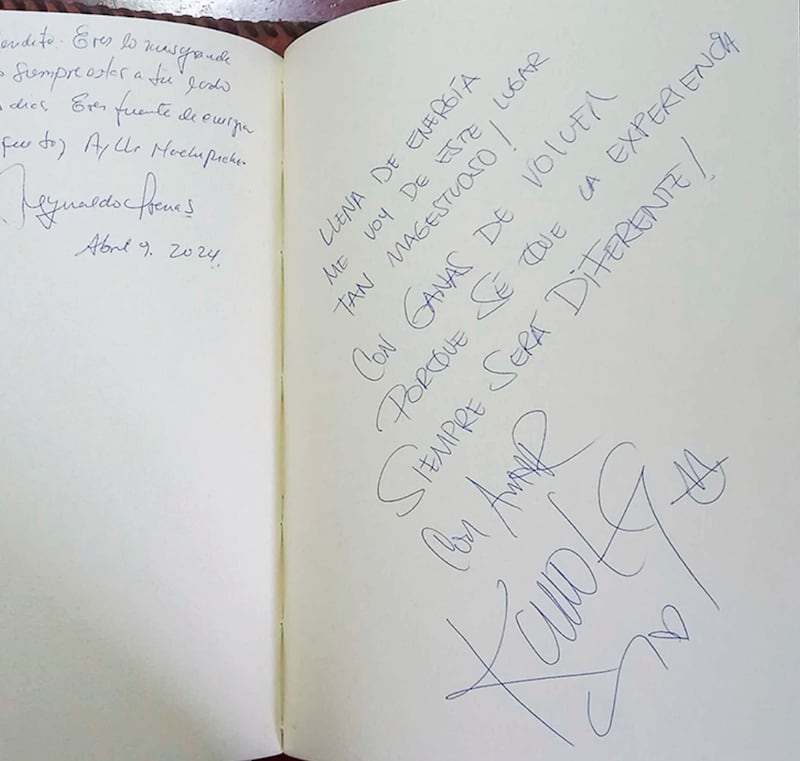 Eres lo mas grande
siempre estar a tu lado
dias. Eres fuente de energia
Machupicchu
Reynaldo Arenas
Abril 9. 2024.
LLENA DE ENERGÍA
ME VOY DE ESTE LUGAR
TAN MAGESTUOSO!
CON GANAS DE VOLVER
PORQUE SÉ QUE LA EXPERIENCIA
SIEMPRE SERÁ DIFERENTE!
CON AMOR
Karol G